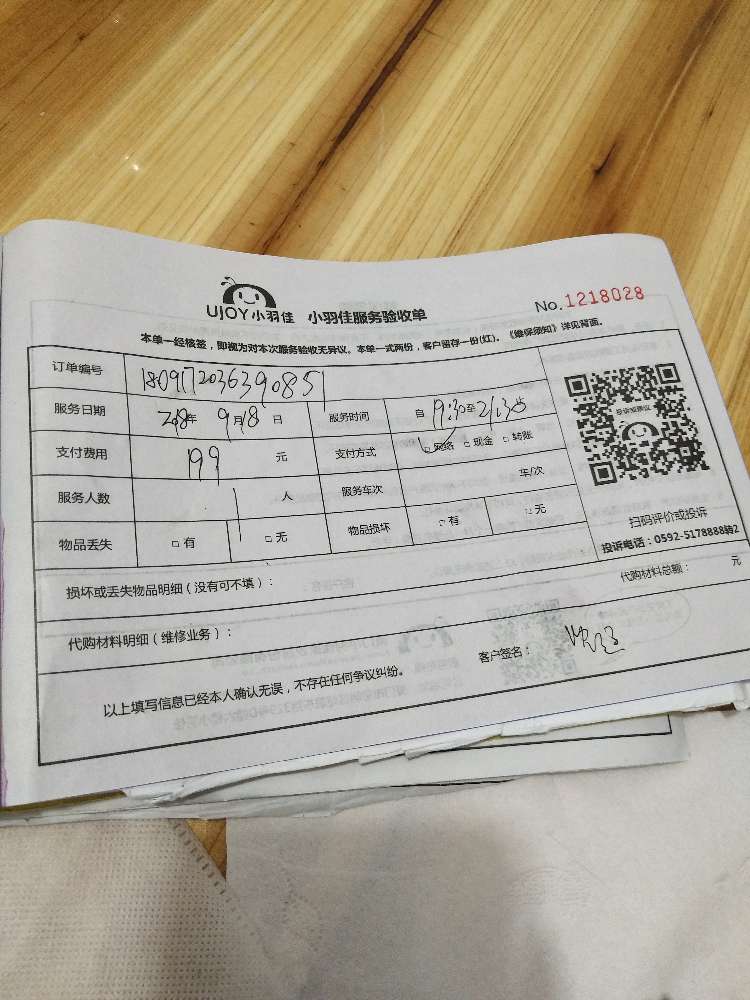 UJOY小羽佳 小羽佳服务验收单 No.1218028
本单一经核签，即视为对本次服务验收无异议。本单一式两份，客户留存一份(红)。《维保须知》详见背面。
订单编号 1809172036390851
服务日期 2018年 9月18日 服务时间 自 19:30至21:30止
支付费用 199 元 支付方式 □网络 □现金 □转账
服务人数 人 服务车次 车/次
物品丢失 □有 □无 物品损坏 □有 □无
扫码评价或投诉
投诉电话：0592-5178888转2
损坏或丢失物品明细（没有可不填）：
代购材料明细（维修业务）： 代购材料总额： 元
以上填写信息已经本人确认无误，不存在任何争议纠纷。 客户签名：